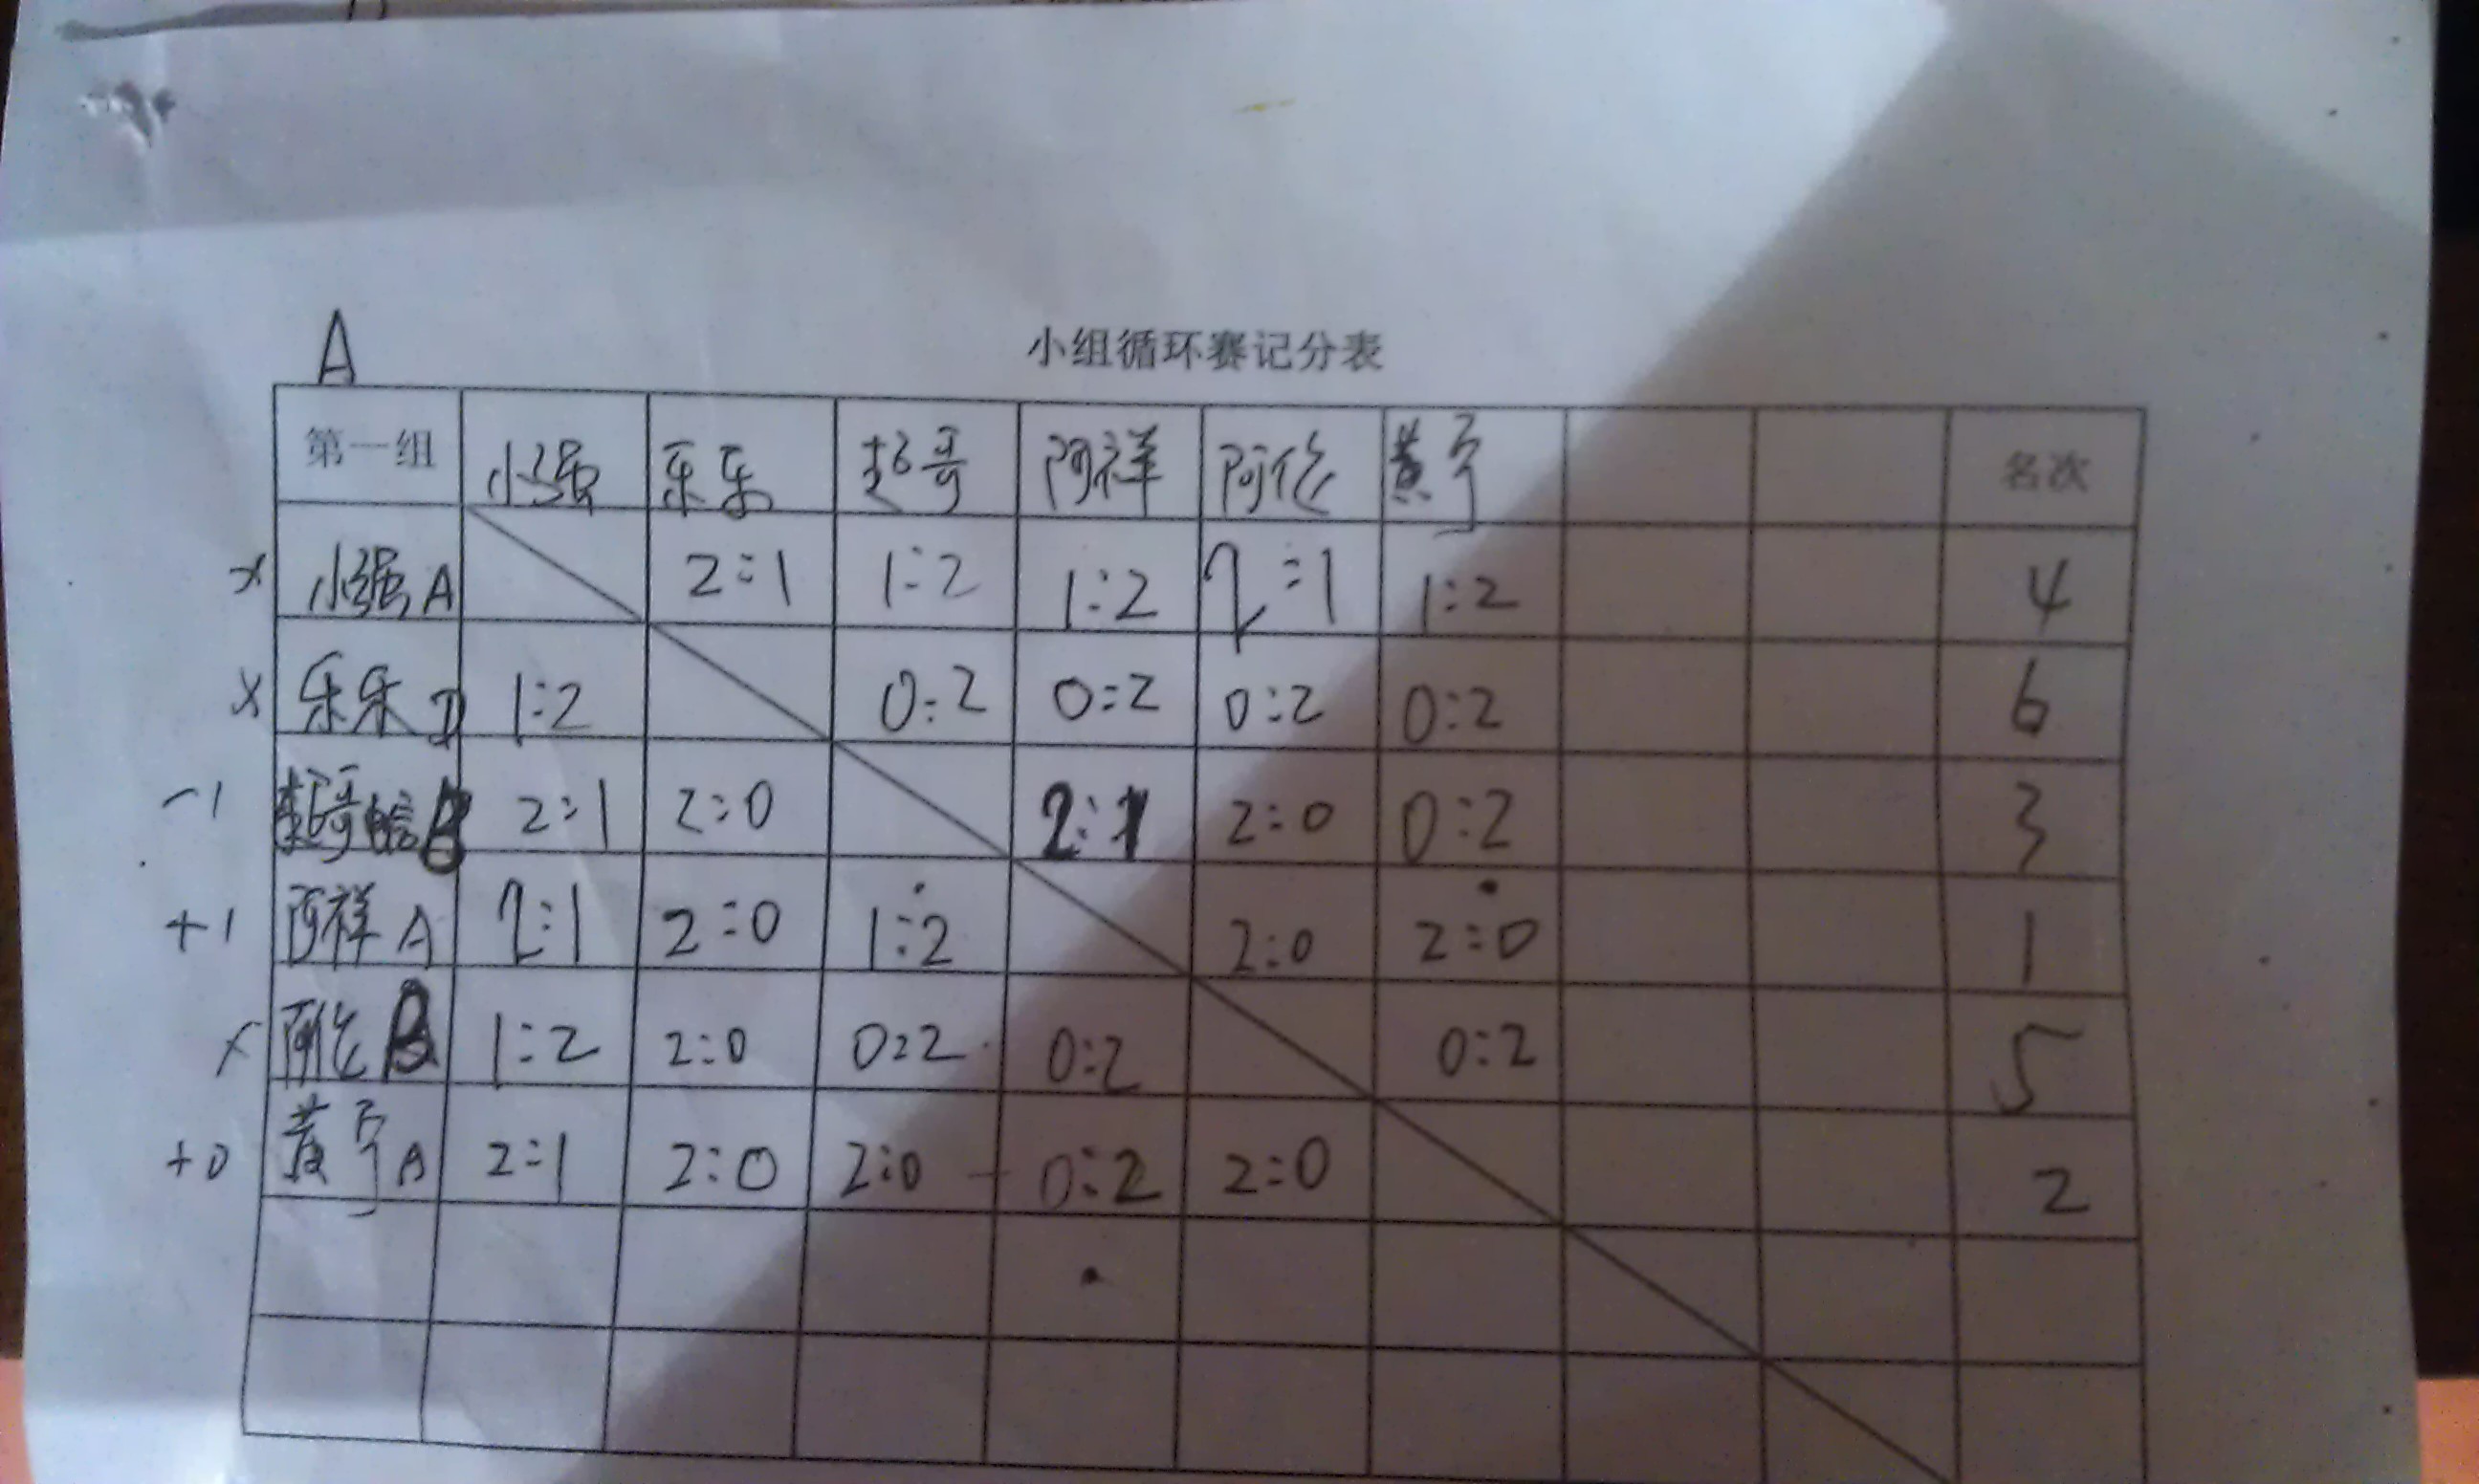 A
小组循环赛记分表
第一组 小强 乐乐 超哥 阿祥 阿伦 黄宇 名次
x 小强 A 2:1 1:2 1:2 2:1 1:2 4
x 乐乐 D 1:2 0:2 0:2 0:2 0:2 6
-1 超哥 B 2:1 2:0 2:1 2:0 0:2 3
+1 阿祥 A 2:1 2:0 1:2 2:0 2:0 1
x 阿伦 B 1:2 2:0 0:2 0:2 0:2 5
+0 黄宇 A 2:1 2:0 2:0 0:2 2:0 2